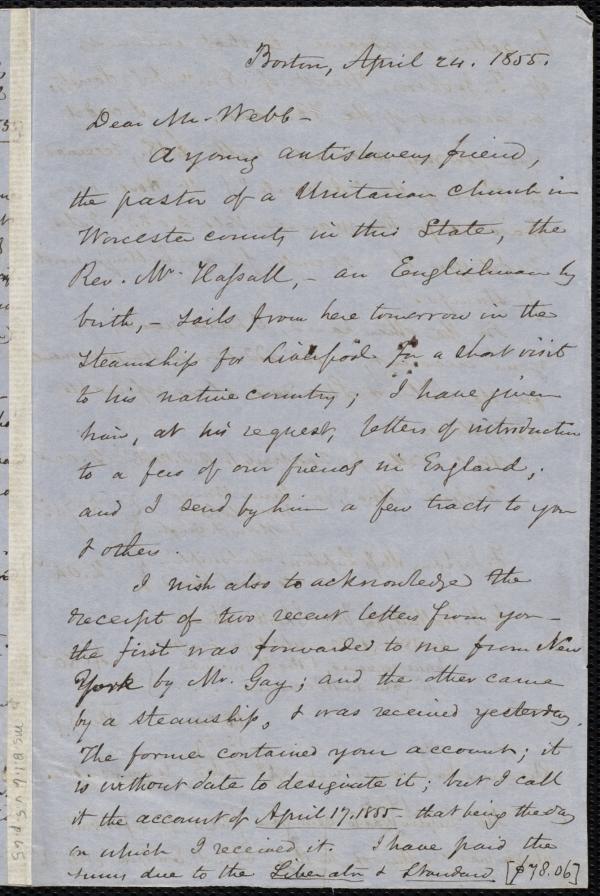 Boston, April 24. 1855.
Dear Mr. Webb -
A young antislavery friend,
the pastor of a Unitarian Church in
Worcester county in this State, the
Rev. Mr. Hassall, - an Englishman by
birth, - sails from here tomorrow in the
steamship for Liverpool for a short visit
to his native country; I have given
him, at his request, letters of introduction
to a few of our friends in England;
and I send by him a few tracts to you
& others.
I wish also to acknowledge the
receipt of two recent letters from you -
the first was forwarded to me from New
York by Mr. Gay; and the other came
by a steamship, & was received yesterday.
The former contained your account; it
is without date to designate it; but I call
it the account of April 17. 1855 - that being the day
on which I received it. I have paid the
sums due to the Liberator & Standard [$78.06]